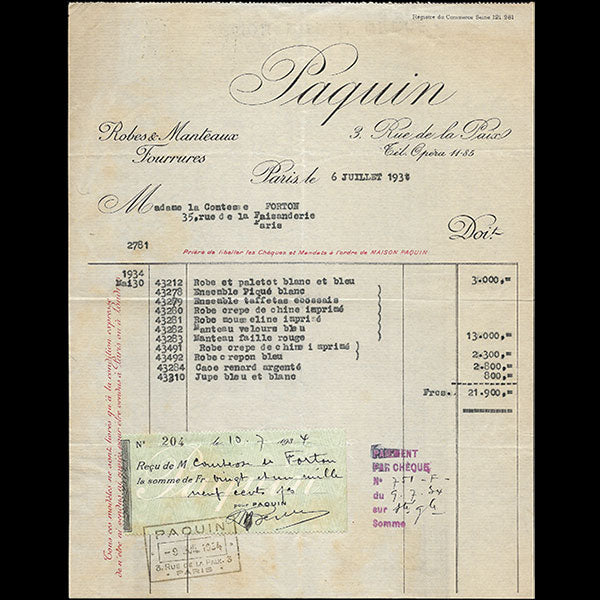 Registre du Commerce Seine 121.281
Paquin
Robes & Manteaux
Fourrures
3. Rue de la Paix
Tél. Opéra 11-85
Paris, le 6 JUILLET 1934
Madame la Contesse FORTON
35, rue de la Faisanderie
Paris
Doit
2781
Prière de libeller les Chèques et Mandats à l'ordre de MAISON PAQUIN
1934
Mai30 43212 Robe et paletot blanc et bleu 3.000,=
43278 Ensemble Piqué blanc
43279 Ensemble taffetas ecossais
43280 Robe crepe de chine imprimé
43281 Robe mousseline imprimé
43282 Manteau velours bleu
43283 Manteau faille rouge 13.000,=
43491 Robe crepe de chine imprimé
43492 Robe crepon bleu 2.300,=
43284 Cape renard argenté 2.800,=
43310 Jupe bleu et blanc 800,=
Frcs. 21.900,=
Tous nos modèles ne sont livrés qu'à la condition expresse
N° 204 le 10.7 1934
Reçu de M Comtesse de Forton
la somme de Fr. vingt et un mille
neuf cents frs
POUR PAQUIN
PAIEMENT
PAR CHÈQUE
N° 751-F-
du 9.7.34
sur
Somme
PAQUIN
-9 JUIL 1934
3, RUE DE LA PAIX, 3
PARIS